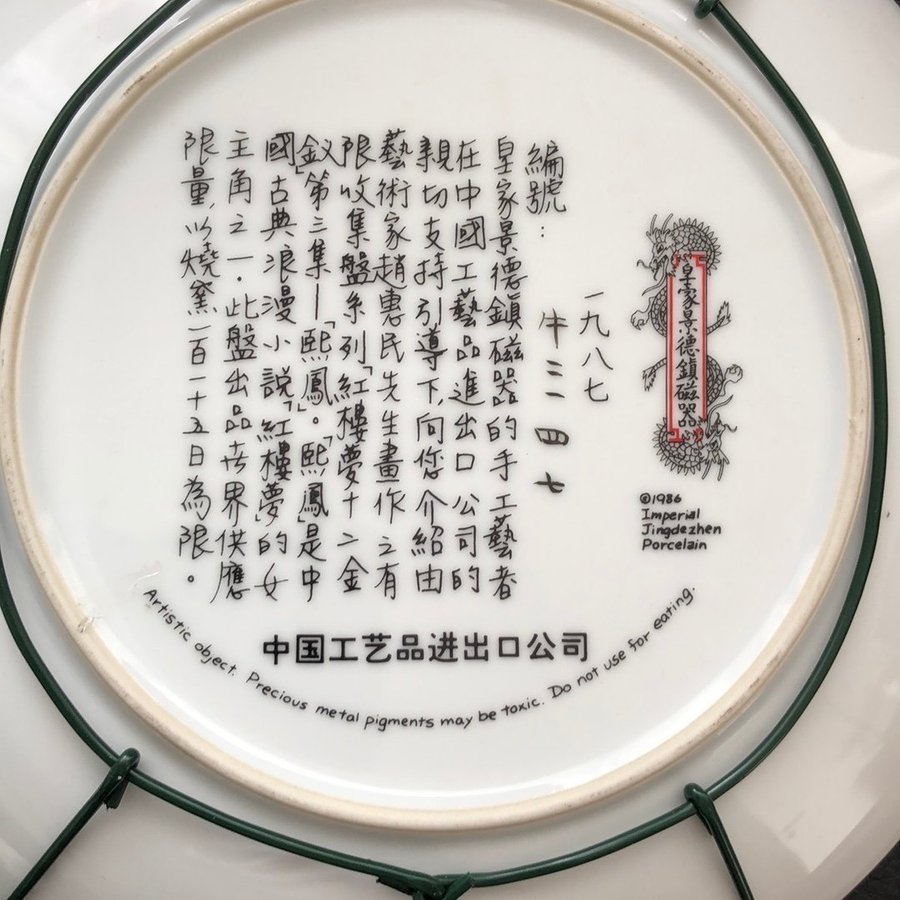 皇家景德鎮磁器
©1986
Imperial
Jingdezhen
Porcelain
一九八七
編號：牛三四七
皇家景德鎮磁器的手工藝者
在中國工藝品進出口公司的
親切支持引導下,向您介紹由
藝術家趙惠民先生畫作之有
限收集盤系列「紅樓夢十二金
釵」第三集—「熙鳳」。「熙鳳」是中
國古典浪漫小說「紅樓夢」的女
主角之一．此盤出品世界供應
限量,以燒窯一百一十五日為限。
中国工艺品进出口公司
Artistic object. Precious metal pigments may be toxic. Do not use for eating.